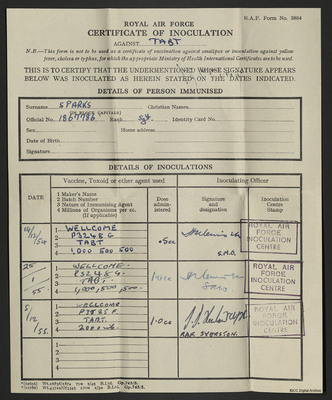 R.A.F. Form No. 3884
ROYAL AIR FORCE
CERTIFICATE OF INOCULATION
AGAINST TABT
N.B.—This form is not to be used as a certificate of vaccination against smallpox or inoculation against yellow
fever, cholera or typhus, for which the appropriate Ministry of Health International Certificates are to be used.
THIS IS TO CERTIFY THAT THE UNDERMENTIONED WHOSE SIGNATURE APPEARS
BELOW WAS INOCULATED AS HEREIN STATED ON THE DATES INDICATED.
DETAILS OF PERSON IMMUNISED
Surname SPARKS Christian Names
(IN BLOCK CAPITALS)
Official No. Rank Identity Card No.
Sex Home address
Date of Birth
Signature
DETAILS OF INOCULATIONS
Vaccine, Toxoid or other agent used Inoculating Officer
DATE
1 Maker's Name
2 Batch Number
3 Nature of Immunising Agent
4 Millions of Organisms per cc.
(If applicable)
Dose
admin-
istered
Signature
and
designation
Inoculation
Centre
Stamp
14/12/54
1 WELLCOME
2 P3248G
3 TABT
4 1,000 500 500
.5cc
S.M.O.
ROYAL AIR
FORCE
INOCULATION
CENTRE
25/1/55
1 WELLCOME
2
3 TABT
4
1.0cc
ROYAL AIR
FORCE
INOCULATION
CENTRE
5/12/55
1 WELLCOME
2
3 TABT
4
1.0cc
RAF SYERSTON
ROYAL AIR
FORCE
INOCULATION
CENTRE
1
2
3
4
IBCC Digital Archive